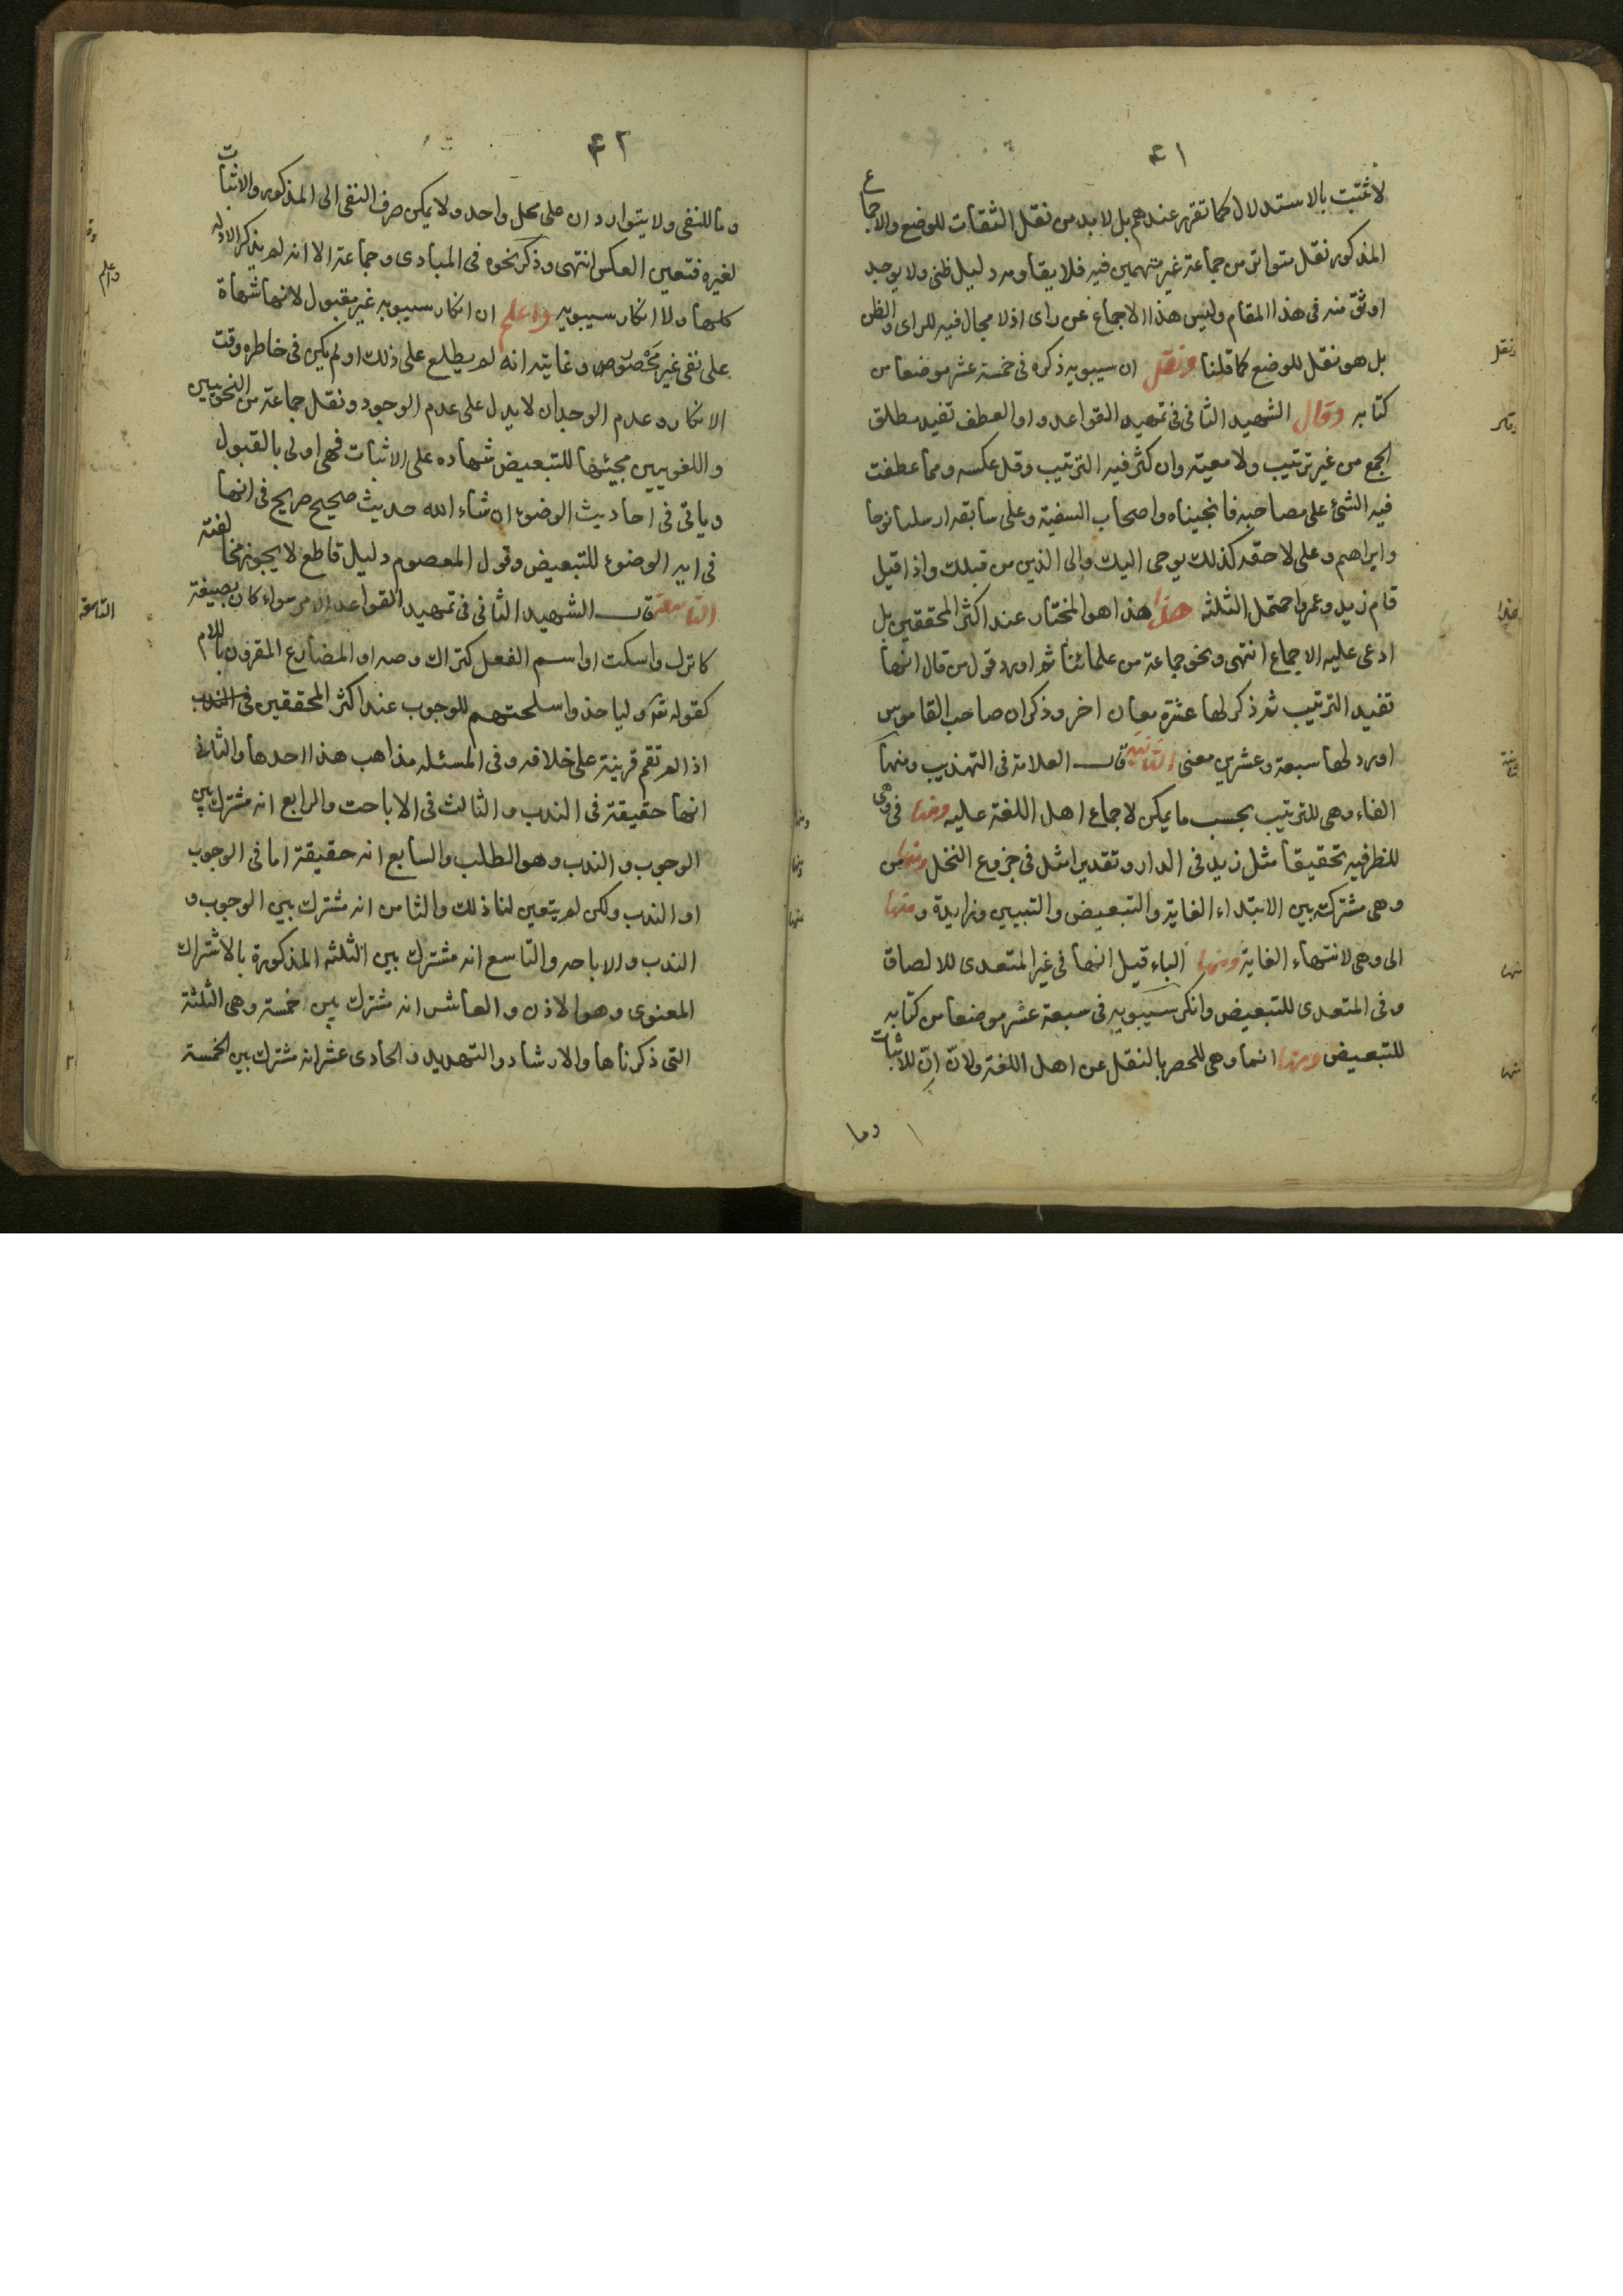 ٤١
لا تثبت بالاستدلال كما تقرر عندهم بل لا بد من نقل الثقات للوضع والاجماع
المذكور نقل متواتر من جماعة غير متهمين فيه فلا يقاومه دليل ظنى ولا يوجد
اوثق منه فى هذا المقام وليس هذا الاجماع عن راى اذ لا مجال فيه للراى والظن
بل هو نقل للوضع كما قلنا ونقل ان سيبويه ذكره فى خمسة عشر موضعا من
كتابه وقال الشهيد الثانى فى تمهيد القواعد واو العطف تفيد مطلق
الجمع من غير ترتيب ولا معية وان كثر فيه الترتيب وقل عكسه ومما عطفت
فيه الشئ على مصاحبه فانجيناه واصحاب السفينة وعلى سابقه ارسلنا نوحا
وابراهيم وعلى لاحقه كذلك يوحى اليك والى الذين من قبلك واذا قيل
قام زيد وعمرو احتمل الثلثه هذا هذا هو المختار عند اكثر المحققين بل
ادعى عليه الاجماع انتهى ونحو جماعة من علمائنا ثم اورد قول من قال انها
تفيد الترتيب ثم ذكر لها عشرة معان اخر وذكر ان صاحب القاموس
اورد لها سبعة وعشرين معنى الثانية قال العلامة فى التهذيب ومنها
الفاء وهى للترتيب بحسب ما يمكن لاجماع اهل اللغة عليه ومنها فى وهى
للظرفيه تحقيقا مثل زيد فى الدار وتقديرا مثل فى جزوع النخل ومنها من
وهى مشترك بين الابتداء الغاية والتبعيض والتبيين وزايدة ومنها
الى وهى لانتهاء الغاية ومنها الباء قيل انها فى غير المتعدى للالصاق
وفى المتعدى للتبعيض وانكر سيبويه فى سبعة عشر موضعا من كتابه
للتبعيض ومنها انما وهى للحصر بالنقل عن اهل اللغة ولان انّ للاثبات
وما
ونقل
وقال
هذا
ومنها
منها
منها
٤٢
وما للنفى ولا يتواردان على محل واحد ولا يمكن صرف النفى الى المذكور والاثبات
لغيره فتعين العكس انتهى وذكر نحوه فى المبادى وجماعة الا انه لم يذكر الادله
كلها ولا انكار سيبويه واعلم ان انكار سيبويه غير مقبول لانها شهاة
على نفى غير محصور وغايته انه لم يطلع على ذلك او لم يكن فى خاطره وقت
الانكار وعدم الوجدان لا يدل على عدم الوجود ونقل جماعة من النحويين
واللغويين مجيئها للتبعيض شهاده على الاثبات فهى اولى بالقبول
وياتى فى احاديث الوضوء ان شاء الله حديث صحيح صريح فى انها
فى ايه الوضوء للتبعيض وقول المعصوم دليل قاطع لا يجوز مخالفته
التاسعة قال الشهيد الثانى فى تمهيد القواعد الامر سواء كان بصيغة
كاترك واسكت او اسم الفعل كتراك وصه او المضارع المقرون باللام
كقوله تعـ وليأخذوا اسلحتهم للوجوب عند اكثر المحققين فى الندب
اذا لم تقم قرينة على خلافه وفى المسئله مذاهب هذا احدها والثانى
انها حقيقة فى الندب والثالث فى الاباحت والرابع انه مشترك بين
الوجوب والندب وهو الطلب والسابع انه حقيقة اما فى الوجوب
او الندب ولكن لم يتعين لنا ذلك والثامن انه مشترك بين الوجوب و
الندب والاباحه والتاسع انه مشترك بين الثلثه المذكورة بالاشتراك
المعنوى وهو الاذن والعاشر انه مشترك بين خمسة وهى الثلثة
التى ذكرناها والارشاد والتهديد والحادى عشر انه مشترك بين الخمسة
واعلم
التاسعة
ومنها
ومنها
منها